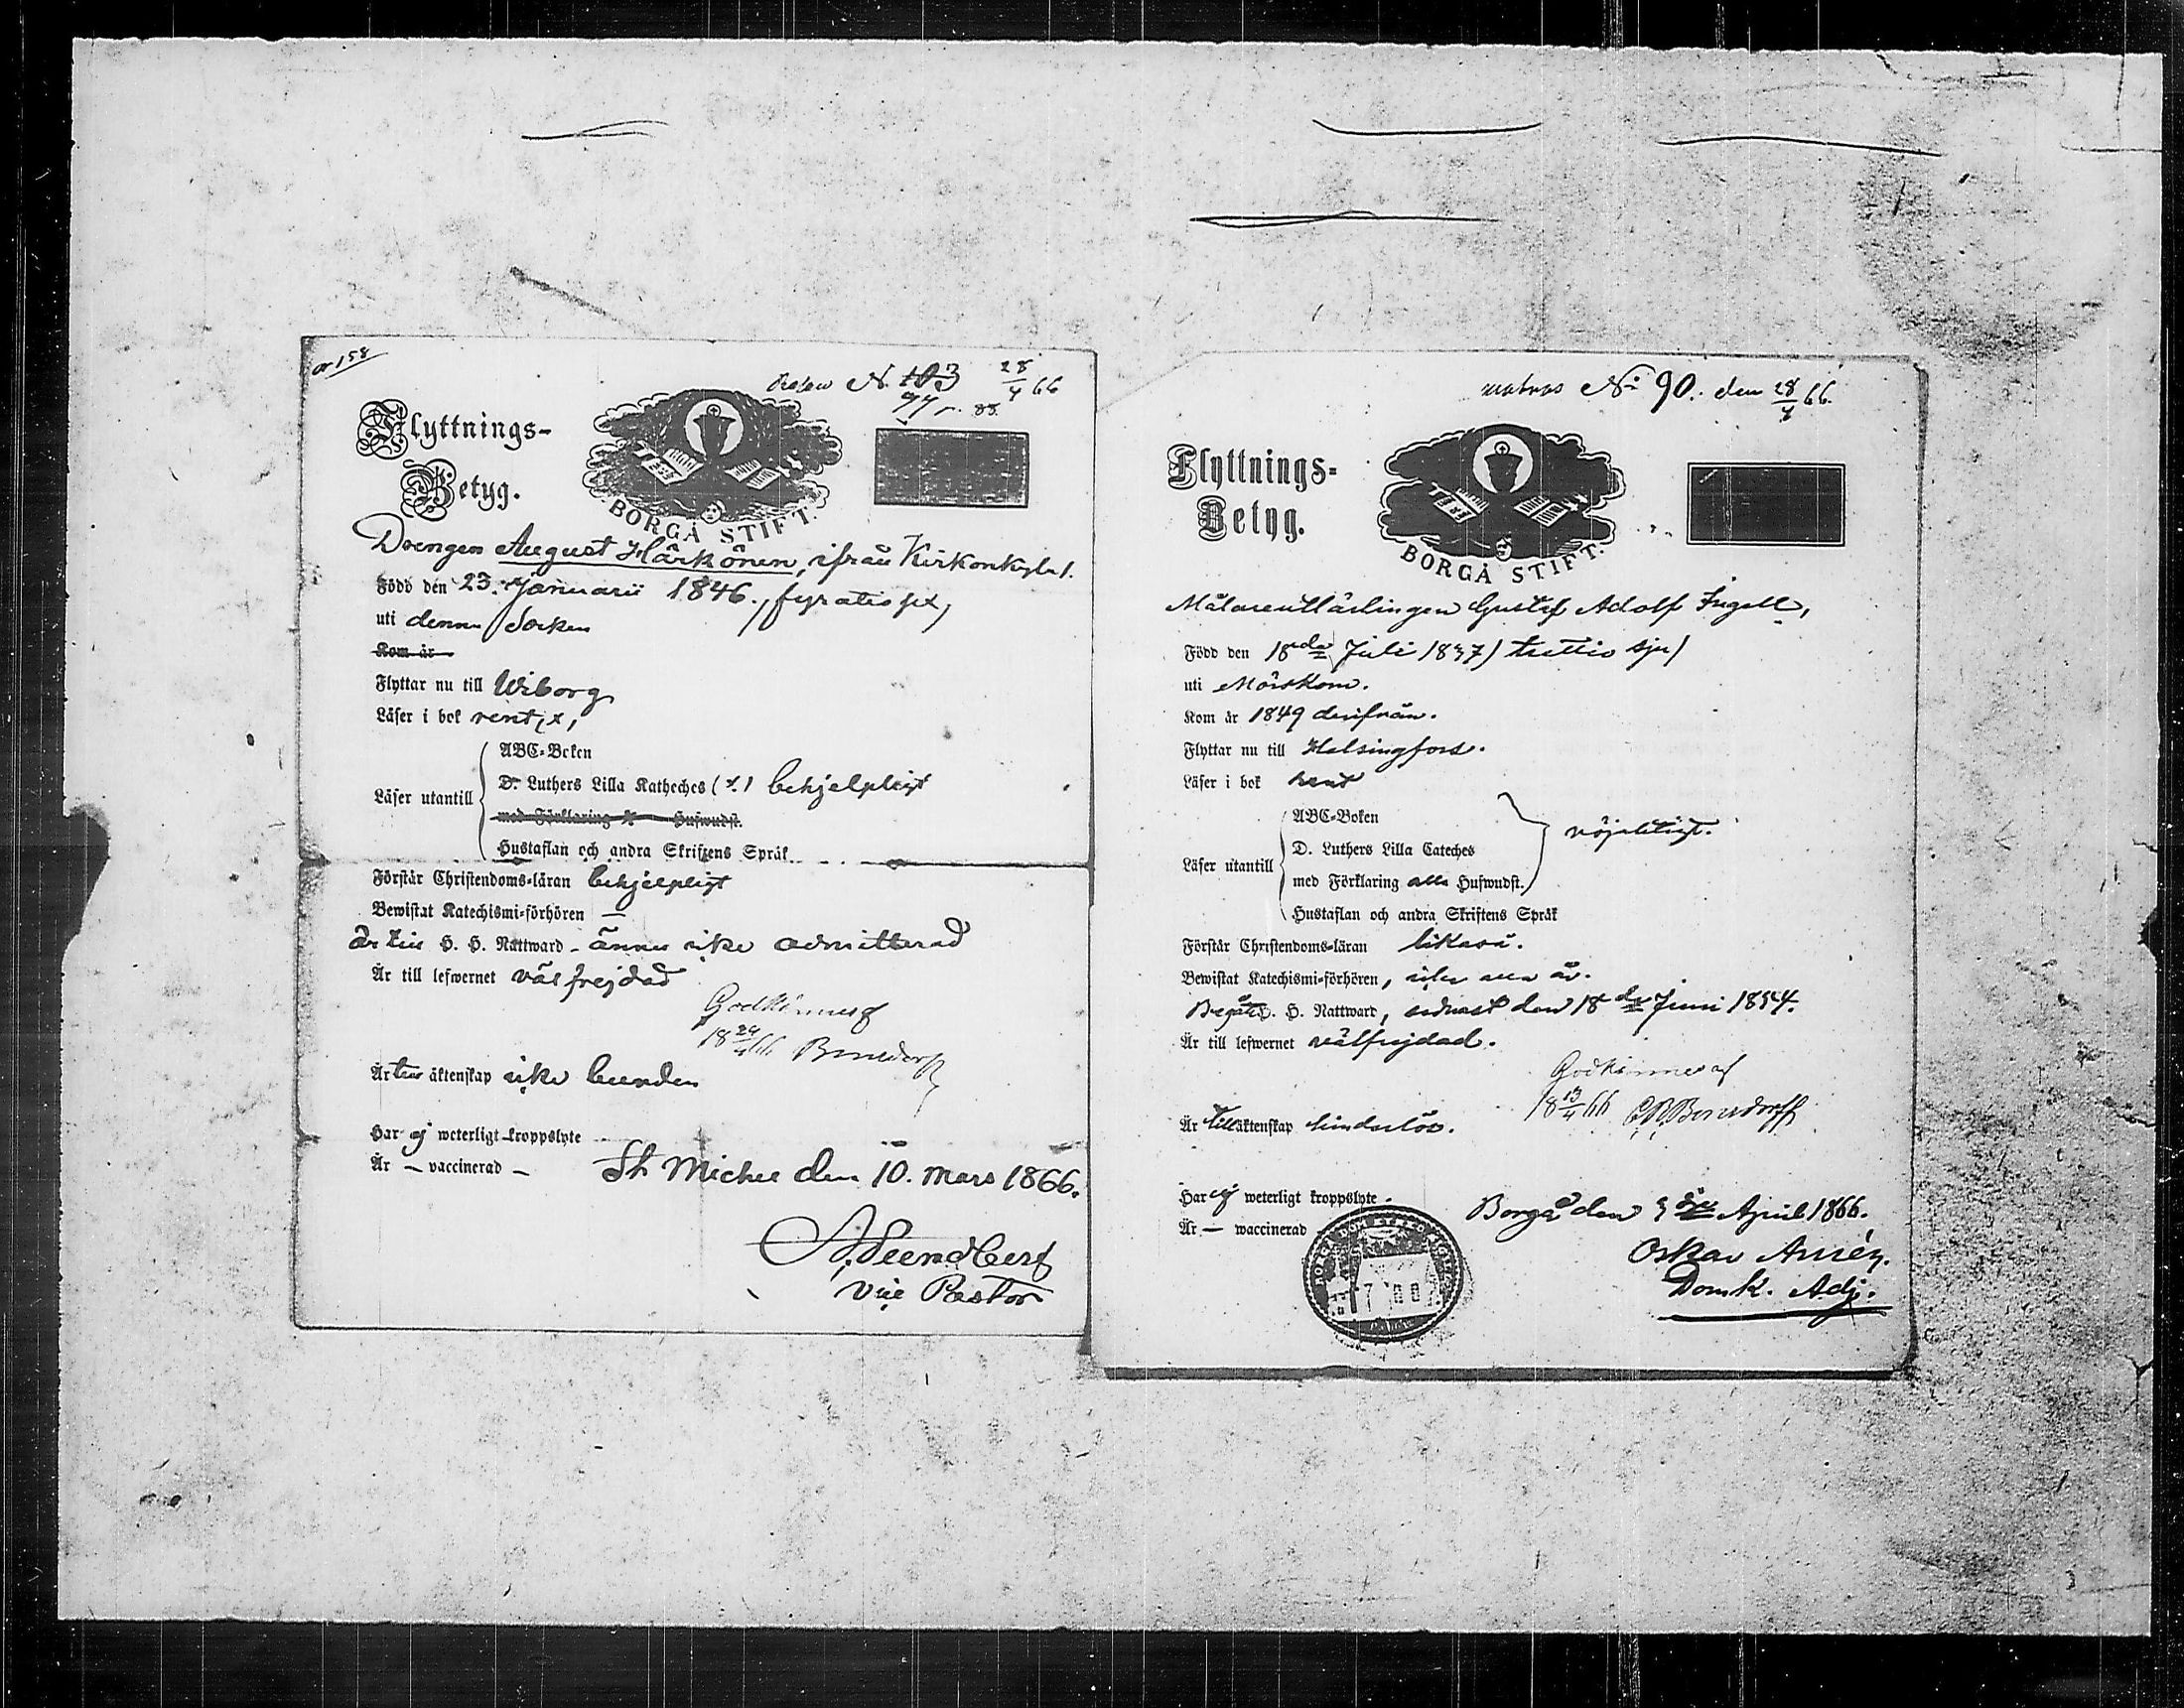 N. 103 28/4 66
Flyttnings-
Betyg.
BORGÅ STIFT.
Drengen August Härkönen, ifrån Kirkonkylä 1.
Född den 23. Januarii 1846., fyratio sex,
uti denna Socken
Kom år
Flyttar nu till Wiborg
Läser i bok rent,
ABC-Boken
D. Luthers Lilla Katheches behjelpligt
Läser utantill
med Förklaring Hufwudst.
Hustaflan och andra Skriftens Språk
Förstår Christendoms-läran behjelpligt
Bewistat Katechismi-förhören —
är till H. H. Nattward - ännu icke admitterad
Är till lefwernet välfrejdad
Godkännes af
18 24/4 66 Bonsdorff
Är till äktenskap icke bunden
Har ej weterligt kroppslyte
Är — vaccinerad —
St Michel den 10. Mars 1866.
Vice Pastor
No 90. den 28/4 66.
Flyttnings-
Betyg.
BORGÅ STIFT.
Målarelärlingen Gustaf Adolf Ingell,
Född den 18de Juli 1837) trettio sju)
uti Mörskom.
Kom år 1849 derifrån.
Flyttar nu till Helsingfors.
Läser i bok rent
ABC-Boken
nöjaktigt.
D. Luthers Lilla Cateches
Läser utantill
med Förklaring alla Hufwudst.
Hustaflan och andra Skriftens Språk
Förstår Christendoms-läran likaså.
Bewistat Katechismi-förhören,
Begått H. H. Nattward, sednast den 18de Juni 1854.
Är till lefwernet välfrejdad.
Godkännes af
18 13/4 66 Bonsdorff
Är till äktenskap hinderlös.
Har ej weterligt kroppslyte.
Är — waccinerad
Borgå den April 1866.
Oskar
Domk. Adj.